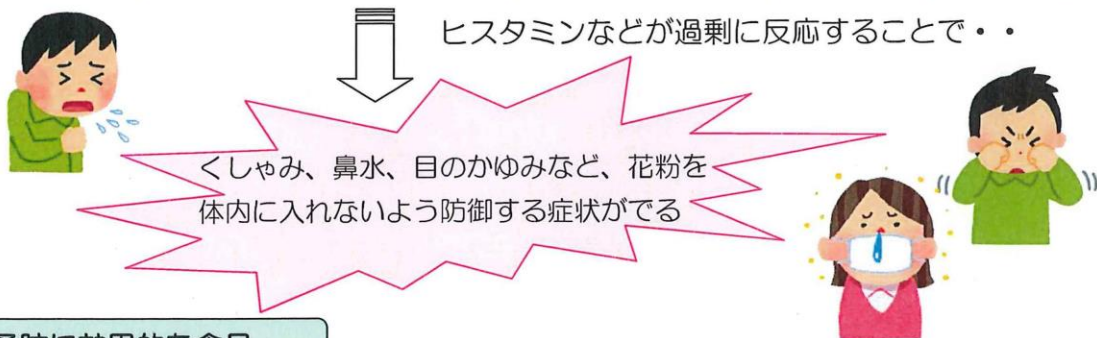 ヒスタミンなどが過剰に反応することで・・
くしゃみ、鼻水、目のかゆみなど、花粉を
体内に入れないよう防御する症状がでる